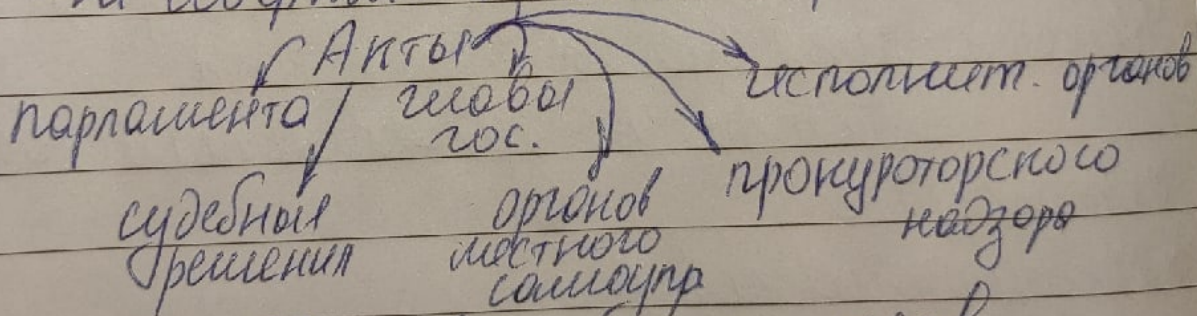 Акты
парламента
главы
гос.
исполнит. органов
судебные
решения
органов
местного
самоупр
прокуроторского
надзора